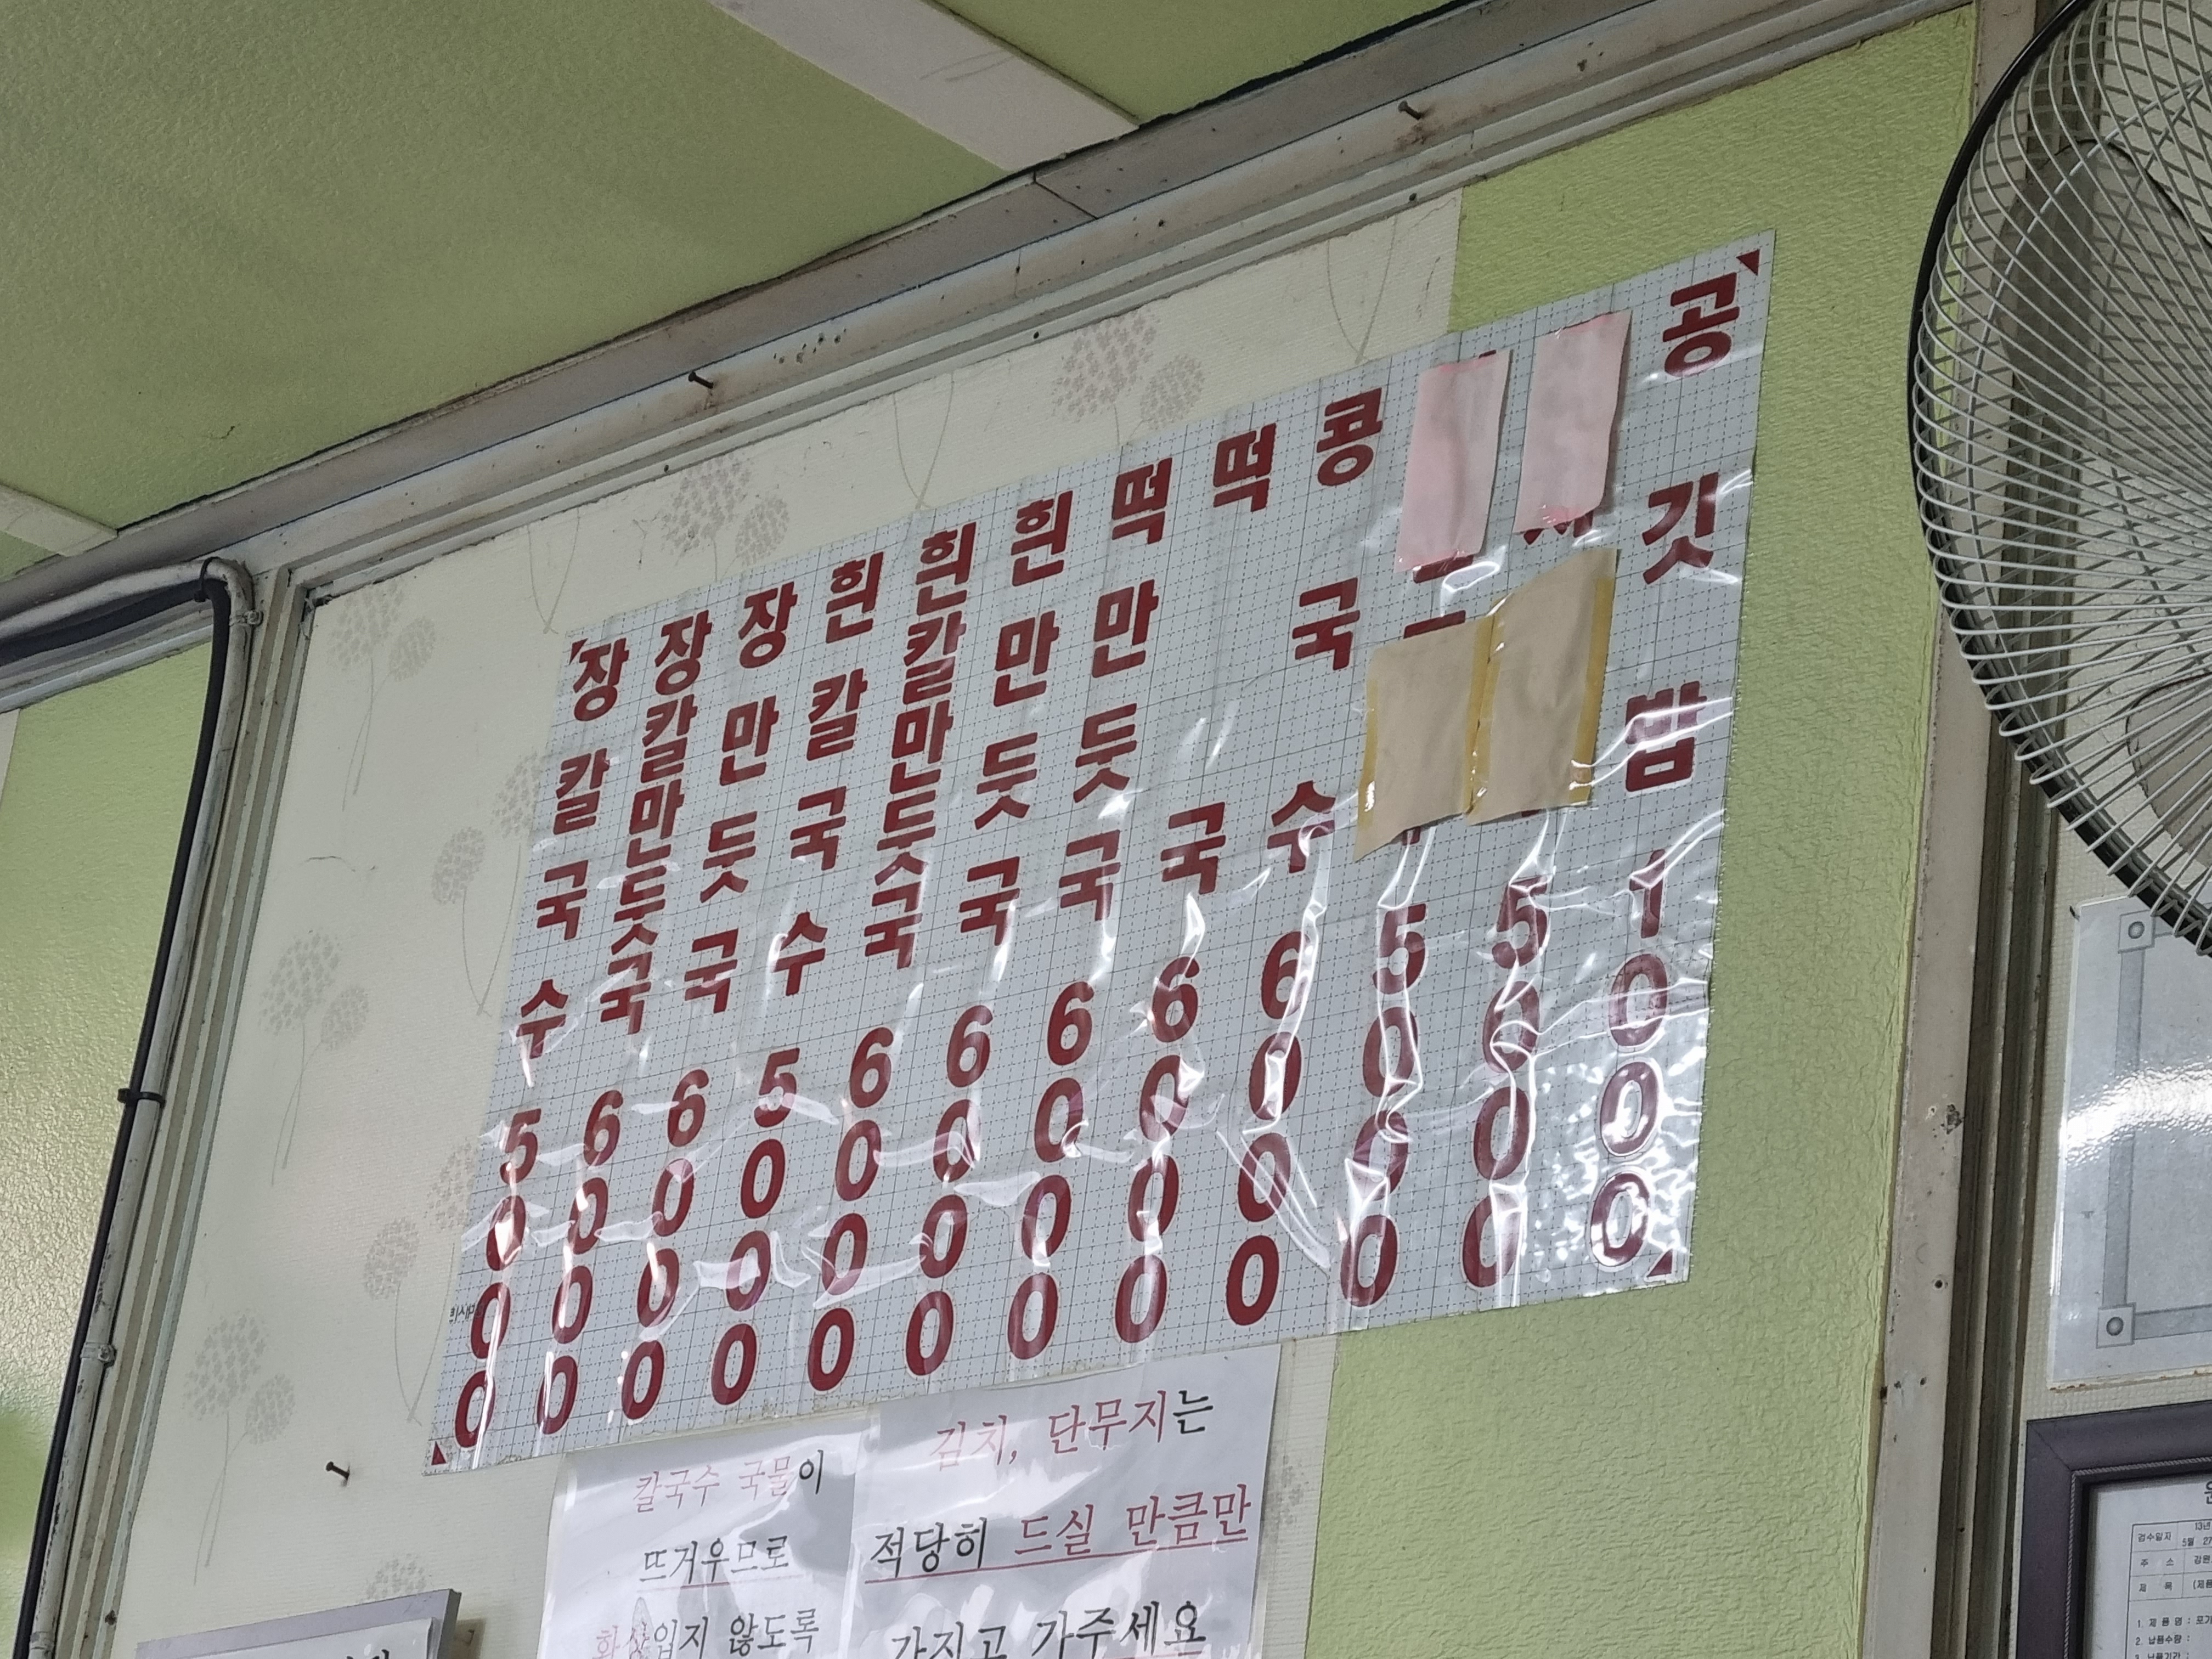 장칼국수 5000
장칼만둣국 6000
장만둣국 6000
흰칼국수 5000
흰칼만둣국 6000
흰만둣국 6000
떡만둣국 6000
떡국 6000
콩국수 6000
5000
5000
공깃밥 1000
칼국수 국물이
뜨거우므로
화상입지 않도록
김치, 단무지는
적당히 드실 만큼만
가지고 가주세요
검수일자
주 소
제 목
1. 제 품 명 :
2. 납품수량 :